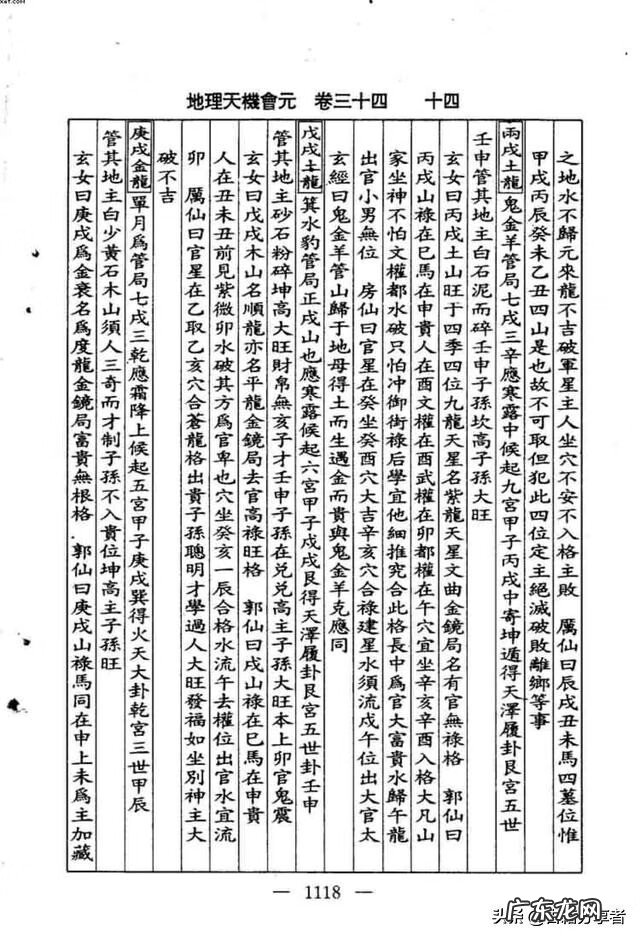 地理天機會元　卷三十四　　十四
之地水不歸元來龍不吉破軍星主人坐穴不安不入格主敗　厲仙曰辰戌丑未馬四墓位惟
甲戌丙辰癸未乙丑四山是也故不可取但犯此四位定主絕滅破敗離鄉等事
丙戌土龍　鬼金羊管局七戌三辛應寒露中候起九宮甲子丙戌中寄坤遁得天澤履卦艮宮五世
壬申管其地主白石泥而碎壬申子孫坎高子孫大旺
玄女曰丙戌土山旺于四季四位九龍天星名紫龍天星文曲金鏡局名有官無祿格　郭仙曰
丙戌山祿在巳馬在申貴人在酉文權在酉武權在卯都權在午穴宜坐辛亥辛酉入格大凡山
家坐神不怕文權都水破只怕冲御街祿后學宜他細推究合此格長中爲官大富貴水歸午龍
出官小男無位　房仙曰官星在癸坐癸酉穴大吉辛亥穴合祿建星水須流戊午位出大官太
玄經曰鬼金羊管山歸于地母得土而生遇金而貴與鬼金羊克應同
戊戌土龍　箕水豹管局正戌山也應寒露候起六宮甲子戊戌艮得天澤履卦艮宮五世卦壬申
管其地主砂石粉碎坤高大旺財帛無亥子才壬申子孫在兌兌高主子孫大旺本上卯官鬼震
玄女曰戊戌木山名順龍亦名平龍金鏡局去官高祿旺格　郭仙曰戌山祿在巳馬在申貴
人在丑未丑前見紫微卯水破其方爲官卑也穴坐癸亥一辰合格水流午去權位出官水宜流
卯　厲仙曰官星在乙取乙亥穴合蒼龍格出貴子孫聰明才學過人大旺發福如坐別神主大
破不吉
庚戌金龍　單月爲管局七戌三乾應霜降上候起五宮甲子庚戌巽得火天大卦乾宮三世甲辰
管其地主白少黃石木山須人三奇而才制子孫不入貴位坤高主子孫旺
玄女曰庚戌爲金衰名爲度龍金鏡局富貴無根格　郭仙曰庚戌山祿馬同在申上未爲主加藏
— 1118 —